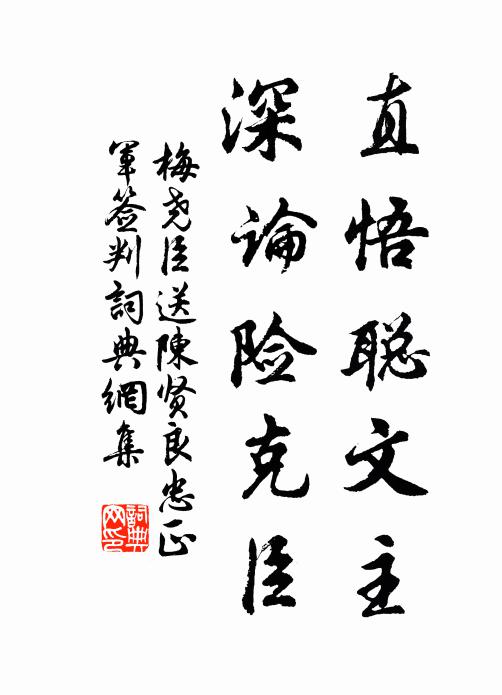 直悟聪文主
深论险克臣
梅尧臣送陈贤良忠正
军签判词典網集
詞典網印